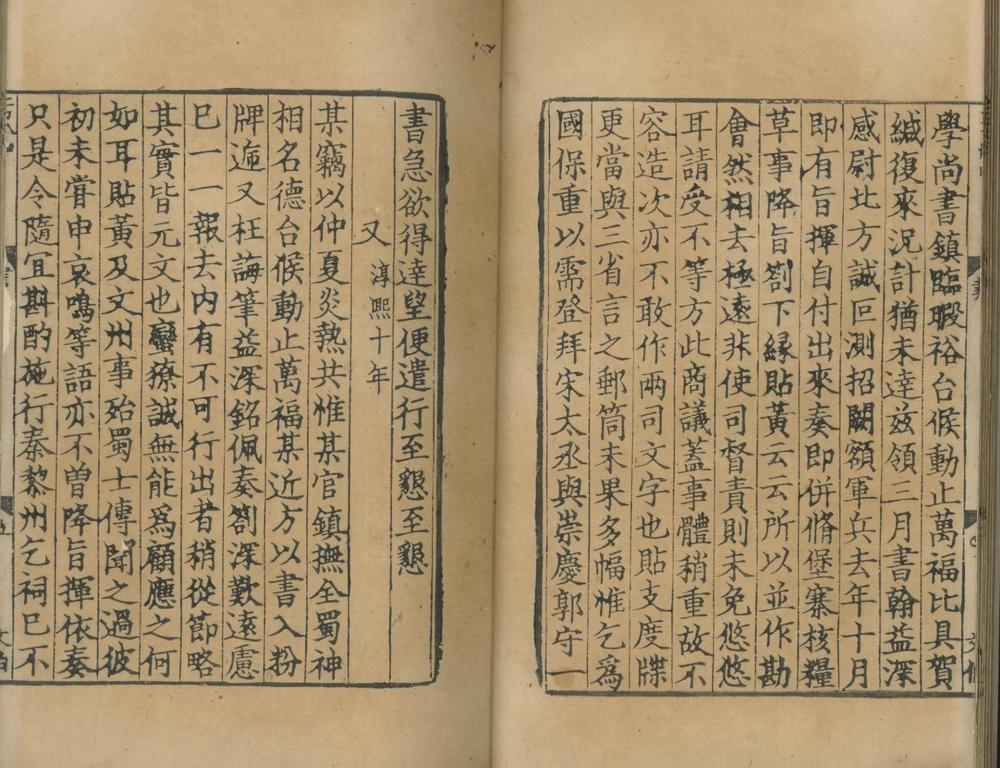 學尚書鎮臨暇裕台候動止萬福比具賀
緘復來況計猶未達兹領三月書翰益深
感尉北方誠叵測招闕額軍兵去年十月
即有旨揮自付出來奏即併脩堡寨核糧
草事降旨劄下緣貼黃云云所以並作勘
會然相去極遠非使司督責則未免悠悠
耳請受不等方此商議蓋事體稍重故不
容造次亦不敢作兩司文字也貼支度牒
更當與三省言之郵筒未果多幅惟乞爲
國保重以需登拜宋太丞與崇慶郭守一
書急欲得達望便遣行至懇至懇
又 淳熙十年
某竊以仲夏炎熱共惟某官鎮撫全蜀神
相名德台候動止萬福某近方以書入粉
牌遞又枉誨筆益深銘佩奏劄深歎遠慮
巳一一報去内有不可行出者稍從節略
其實皆元文也蠻獠誠無能爲顧應之何
如耳貼黃及文州事殆蜀士傳聞之過彼
初未甞申哀鳴等語亦不曾降旨揮依奏
只是令隨冝斟酌施行秦黎州乞祠巳不